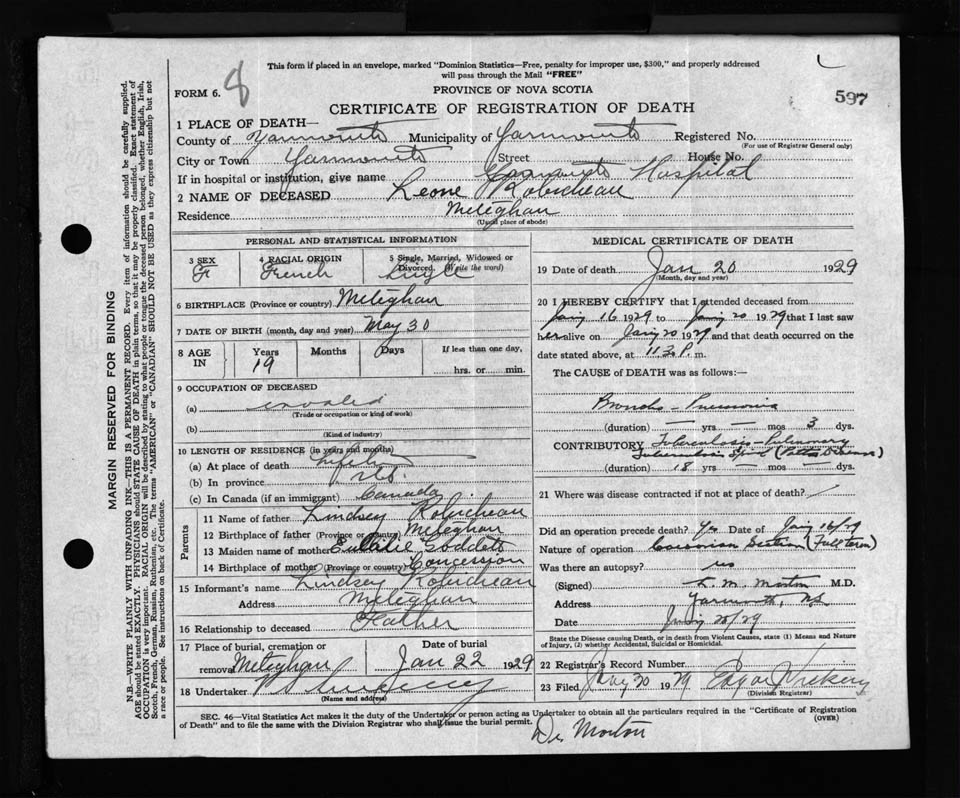 This form if placed in an envelope, marked "Dominion Statistics—Free, penalty for improper use, $300," and properly addressed
will pass through the Mail "FREE"
FORM 6. 8
PROVINCE OF NOVA SCOTIA
597
CERTIFICATE OF REGISTRATION OF DEATH
1 PLACE OF DEATH—
County of Yarmouth Municipality of Yarmouth Registered No.
(For use of Registrar General only)
City or Town Yarmouth Street House No.
If in hospital or institution, give name Yarmouth Hospital
2 NAME OF DECEASED Leone Robicheau
Residence Meteghan
(Usual place of abode)
PERSONAL AND STATISTICAL INFORMATION
3 SEX 4 RACIAL ORIGIN 5 Single, Married, Widowed or Divorced. (Write the word)
Fr French Single
6 BIRTHPLACE (Province or country) Meteghan
7 DATE OF BIRTH (month, day and year) May 30
8 AGE IN Years Months Days If less than one day,
19 hrs. or min.
9 OCCUPATION OF DECEASED
(a) invalid
(Trade or occupation or kind of work)
(b)
(Kind of industry)
10 LENGTH OF RESIDENCE (in years and months)
(a) At place of death
(b) In province
(c) In Canada (if an immigrant) Canada
Parents
11 Name of father Lindsey Robicheau
12 Birthplace of father (Province or country) Meteghan
13 Maiden name of mother Eulalie
14 Birthplace of mother (Province or country) Concession
15 Informant's name Lindsey Robicheau
Address Meteghan
16 Relationship to deceased Father
17 Place of burial, cremation or removal Date of burial
Meteghan Jan 22 1929
18 Undertaker
(Name and address)
MEDICAL CERTIFICATE OF DEATH
19 Date of death Jan 20 1929
(Month, day and year)
20 I HEREBY CERTIFY that I attended deceased from
Jany 16 1929 to Jany 20 1929 that I last saw
her alive on Jany 20 1929 and that death occurred on the
date stated above, at 11.30 P. m.
The CAUSE of DEATH was as follows:—
Broncho-Pneumonia
(duration) — yrs — mos 3 dys.
CONTRIBUTORY Tuberculosis-Pulmonary
Tuberculosis Spine (Potts Disease)
(duration) 18 yrs — mos — dys.
21 Where was disease contracted if not at place of death?
Did an operation precede death? Yes Date of Jany 16/29
Nature of operation Caesarian Section (Full term)
Was there an autopsy? no
(Signed) L. M. Morton M.D.
Address Yarmouth, NS
Date
State the Disease causing Death, or in death from Violent Causes, state (1) Means and Nature
of Injury, (2) whether Accidental, Suicidal or Homicidal.
22 Registrar's Record Number
23 Filed Jany 30 1929 Edgar Vickery
(Division Registrar)
SEC. 46—Vital Statistics Act makes it the duty of the Undertaker or person acting as Undertaker to obtain all the particulars required in the "Certificate of Registration
of Death" and to file the same with the Division Registrar who shall issue the burial permit.
(OVER)
Dr Morton
MARGIN RESERVED FOR BINDING
N.B.—WRITE PLAINLY WITH UNFADING INK—THIS IS A PERMANENT RECORD. Every item of information should be carefully supplied.
AGE should be stated EXACTLY. PHYSICIANS should STATE CAUSE OF DEATH in plain terms, so that it may be properly classified. Exact statement of
OCCUPATION is very important. RACIAL ORIGIN will be described by stating to what people or tongue the deceased person belonged, whether English, Irish,
Scotch, French, German, Russian, Ruthenian, etc. The terms "AMERICAN" or "CANADIAN" SHOULD NOT BE USED as they express citizenship but not
a race or people. See instructions on back of Certificate.